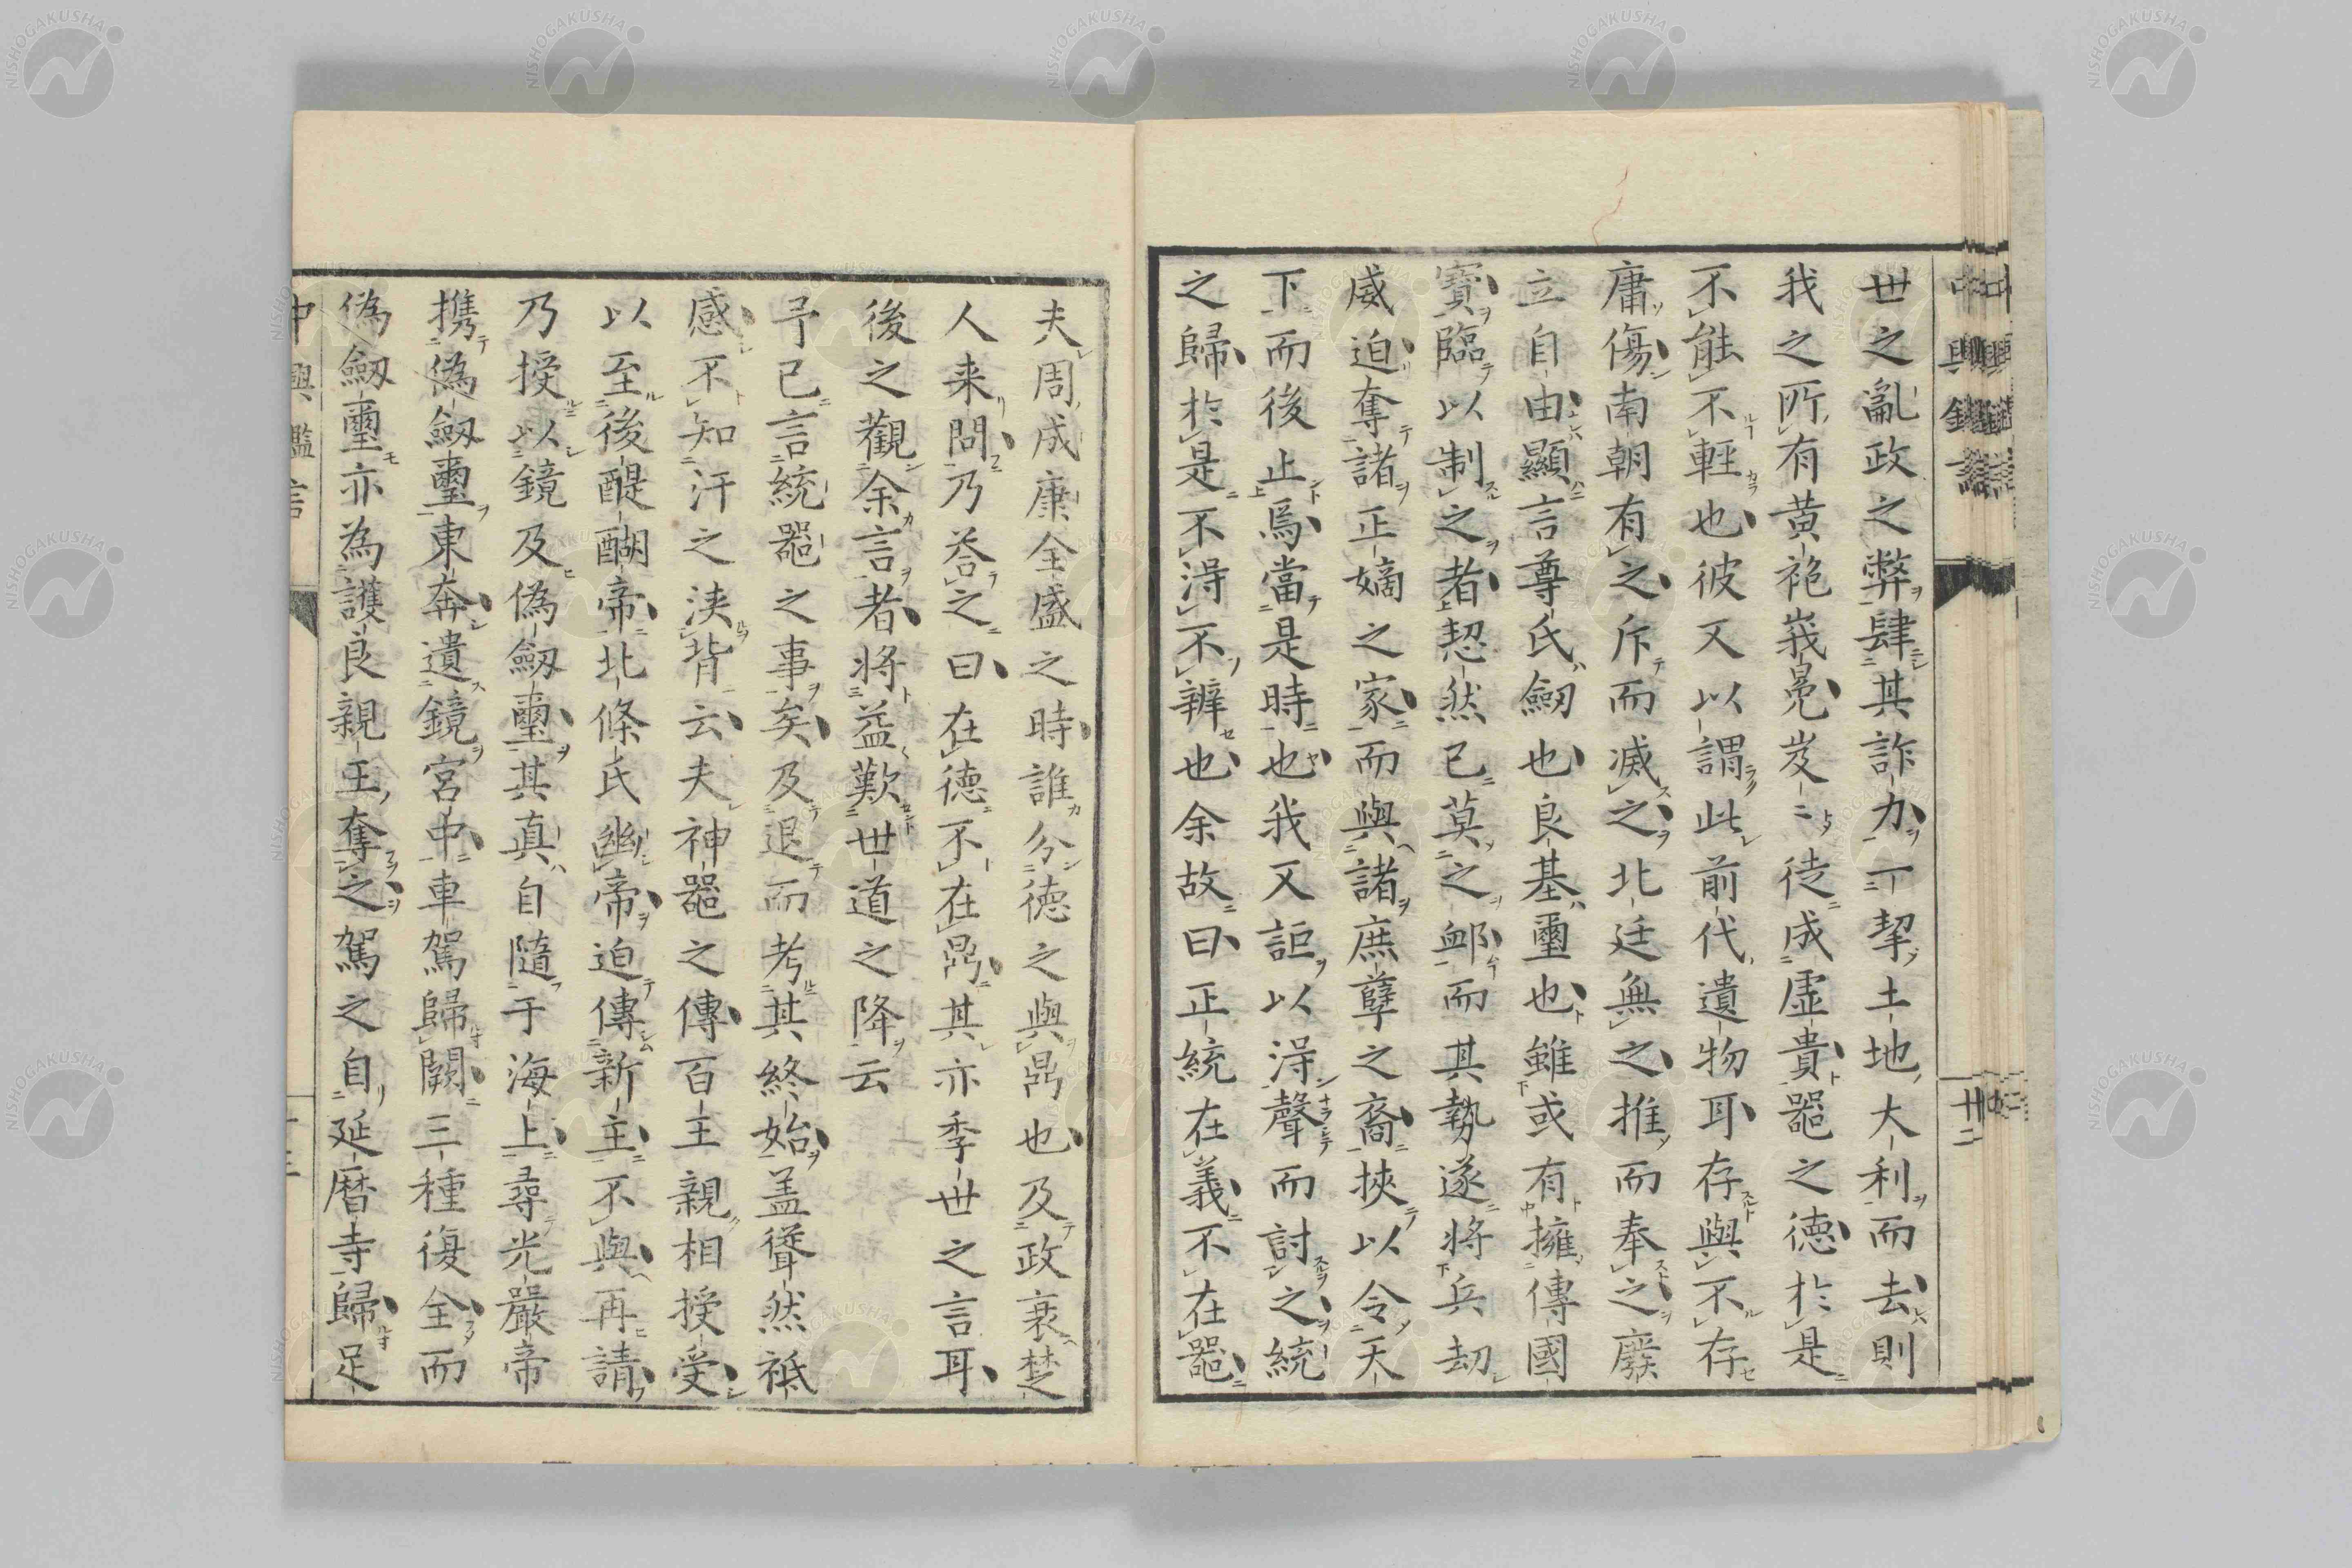 世之亂政之弊肆其詐力一挈土地大利而去則
我之所有黄袍峩冕岌〻徒成虛貴器之德於是
不能不輕也彼又以謂此前代遺物耳存與不存
庸傷南朝有之斥而滅之北廷無之推而奉之廢
立自由顯言尊氏劔也良基璽也雖或有擁傳國
寶臨以制之者恝然已莫之邺而其勢遂將兵劫
威迫奪諸正嫡之家而與諸庶孽之裔挾以令天
下而後止焉當是時也我又詎以淂聲而討之統
之歸於是不淂不辨也余故曰正統在義不在器
夫周成康全盛之時誰分德之與鼎也及政衰楚
人来問乃荅之曰在德不在鼎其亦季世之言耳
後之觀余言者將益歎世道之降云
予已言統器之事矣及退而考其終始盖聳然祗
感不知汗之浹背云夫神器之傳百王親相授受
以至後醍醐帝北條氏幽帝迫傳新主不與再請
乃授以鏡及偽劔璽其真自隨于海上尋光嚴帝
携偽劔璽東奔遺鏡宮中車駕歸闕三種復全而
偽劔璽亦為護良親王奪之駕之自延暦寺歸足
中興鑑言
廿二